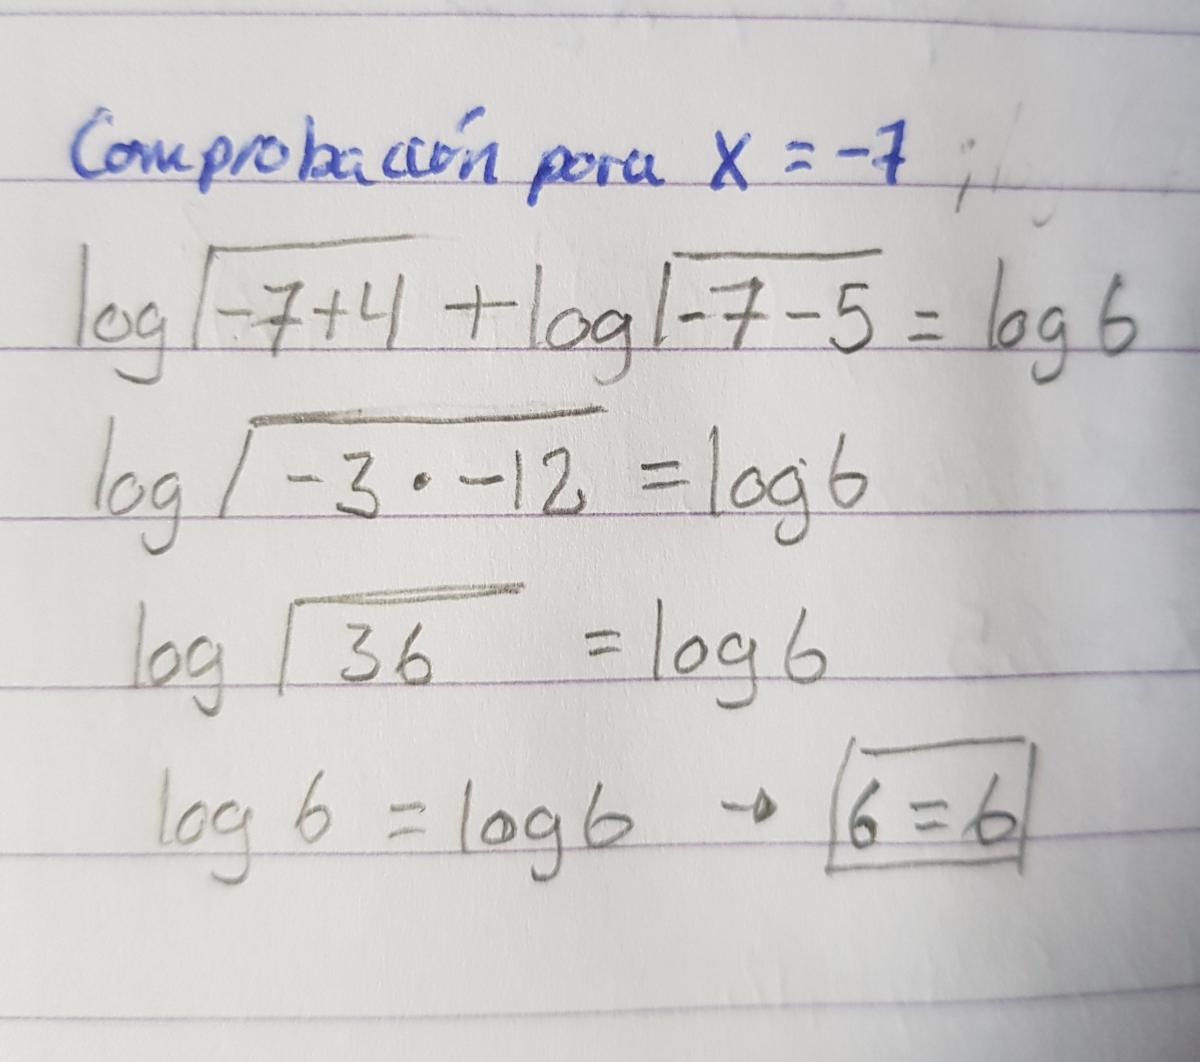 Comprobación para x = -7
log √-7+4 + log √-7-5 = log 6
log √-3 · -12 = log 6
log √36 = log 6
log 6 = log 6 → 6 = 6